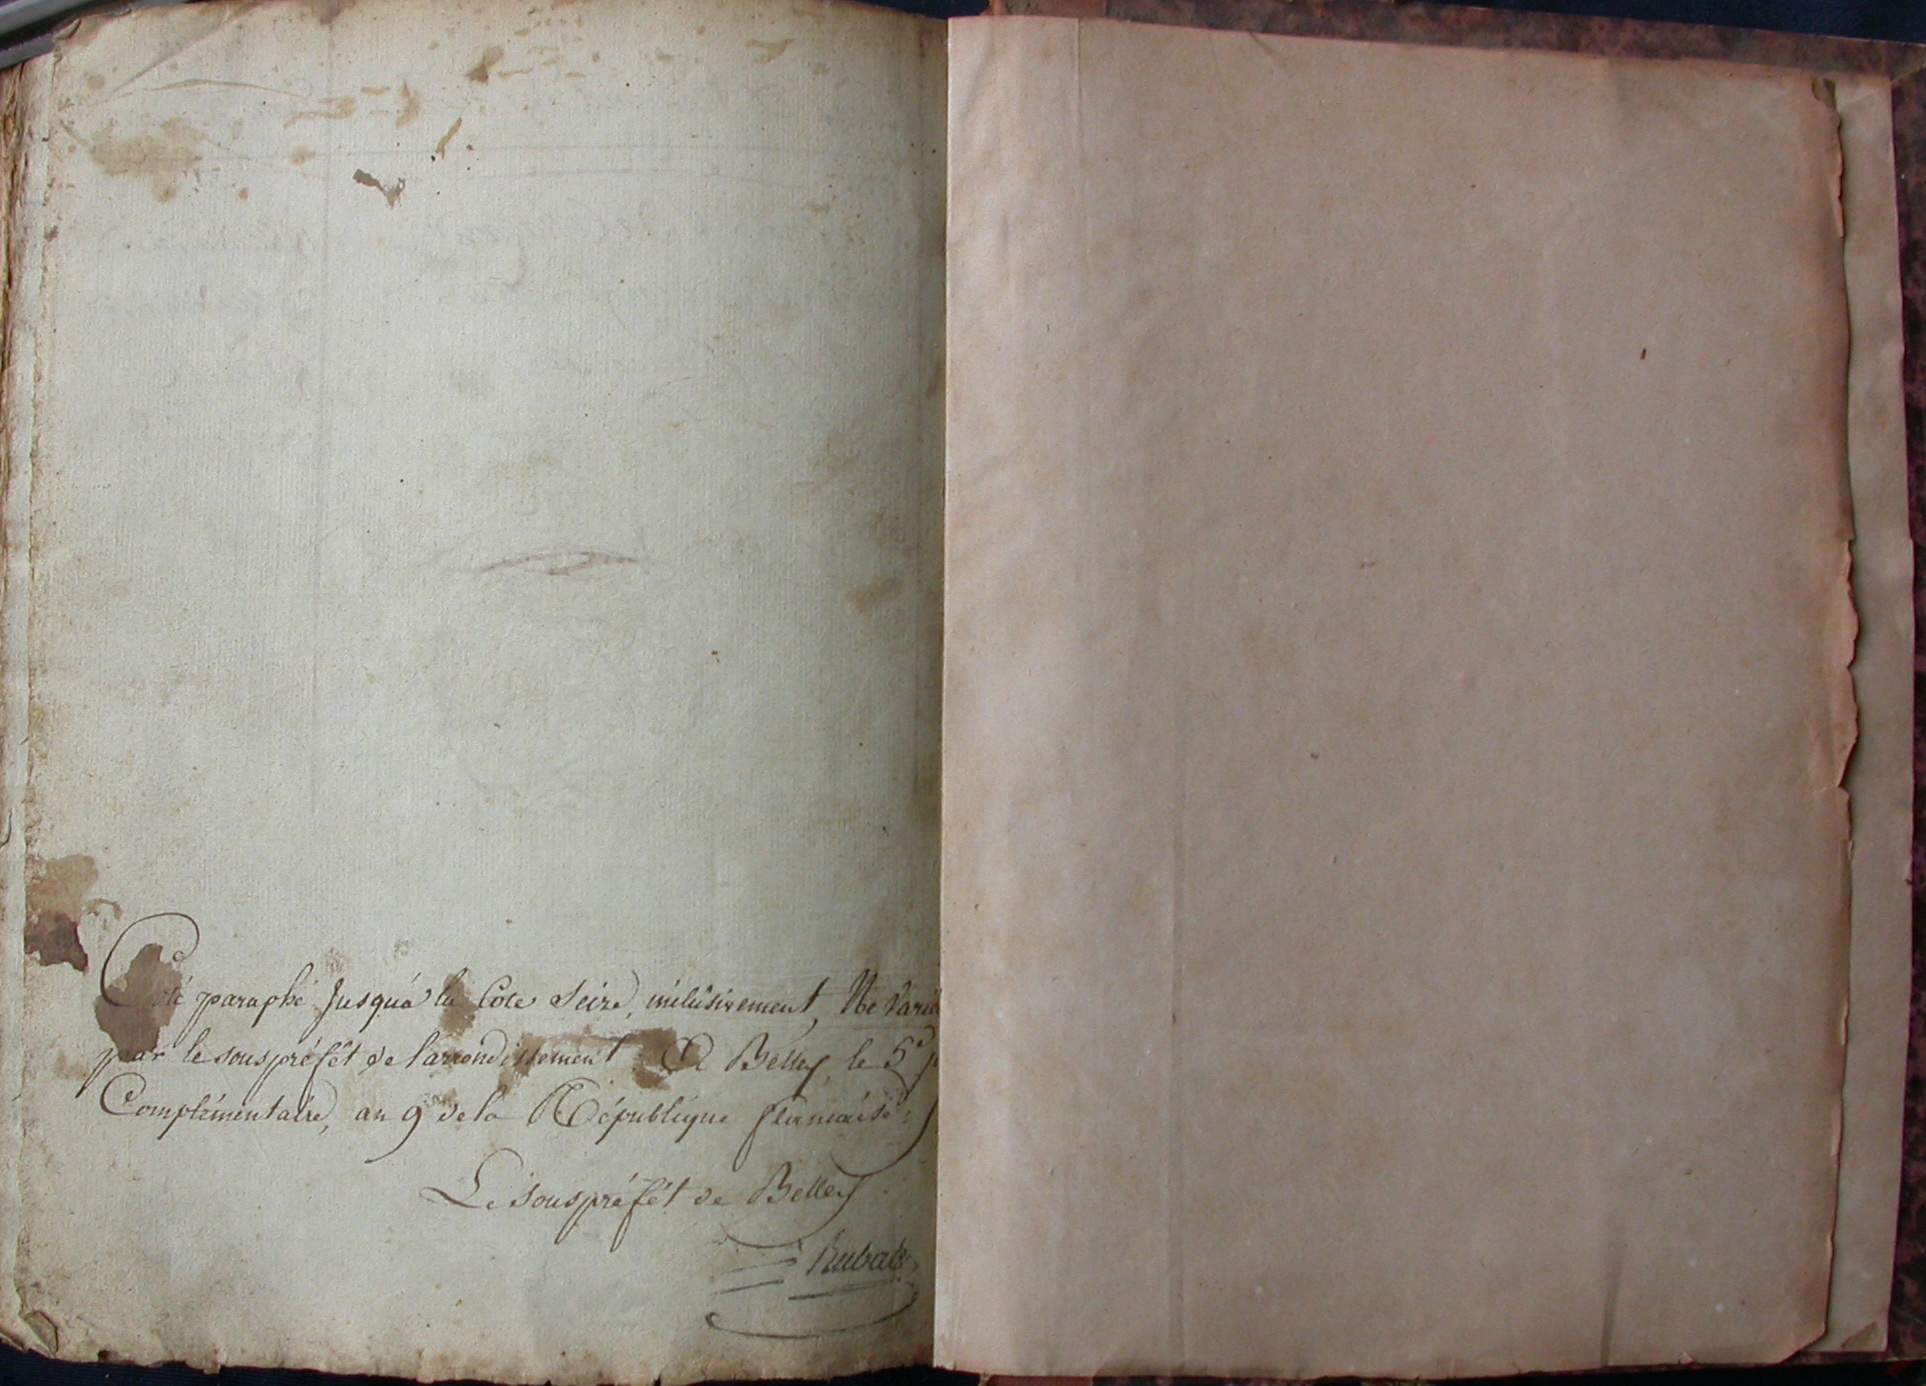 Coté paraphé Jusqu'á la Cote Seize, inclusivement, Ne Varie
par le souspréfét de l'arrondissement A Belley, le 5e
Complémentaire, an 9 de la République française.
Le souspréfét de Belley
Rubat